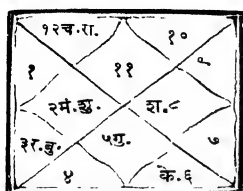 १२च.रा.
१०
१
११
९
२मं.शु.
श.८
३र.बु.
५गु.
७
४
के.६